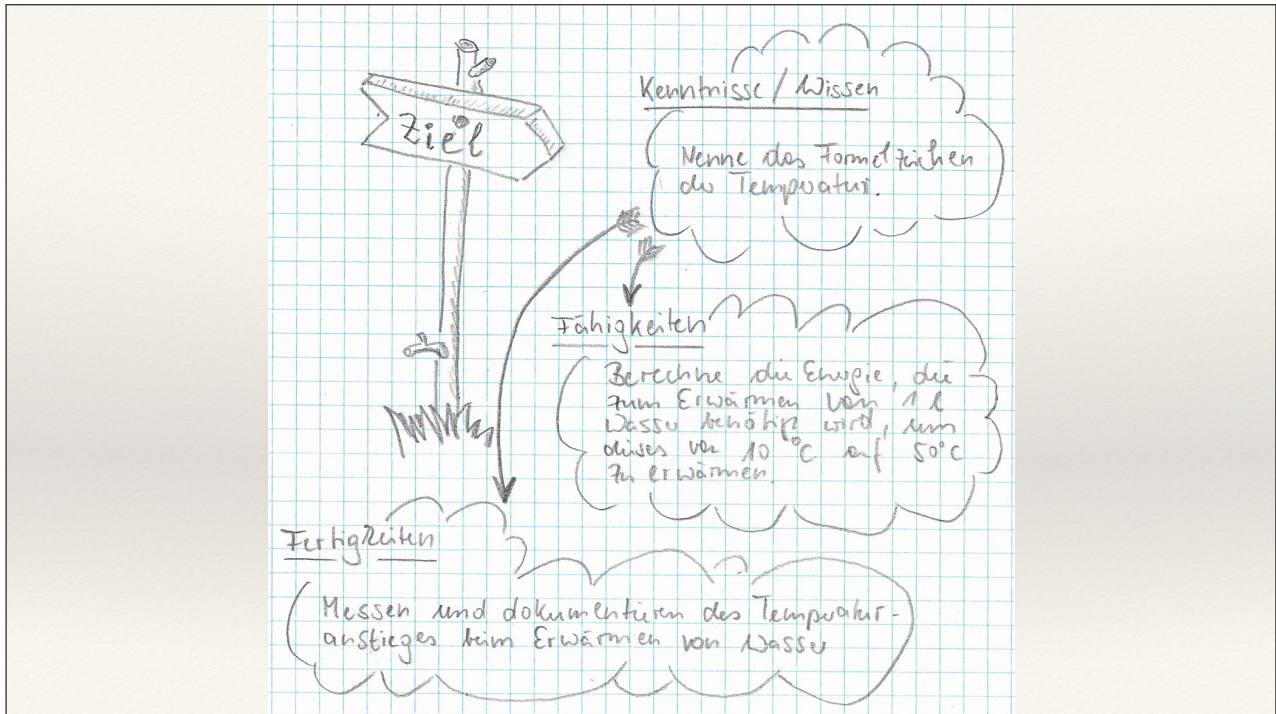 Ziel
Kenntnisse / Wissen
Nenne das Formelzeichen
der Temperatur.
Fähigkeiten
Berechne die Energie, die
zum Erwärmen von 1 l
Wasser benötigt wird, um
dieses von 10 °C auf 50°C
zu erwärmen.
Fertigkeiten
Messen und dokumentieren des Temperatur-
anstieges beim Erwärmen von Wasser